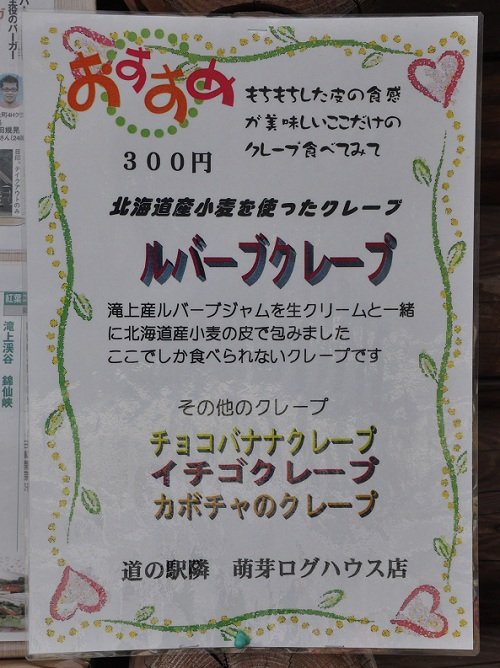 おすすめ
もちもちした皮の食感
が美味しいここだけの
クレープ食べてみて
３００円
北海道産小麦を使ったクレープ
ルバーブクレープ
滝上産ルバーブジャムを生クリームと一緒
に北海道産小麦の皮で包みました
ここでしか食べられないクレープです
その他のクレープ
チョコバナナクレープ
イチゴクレープ
カボチャのクレープ
道の駅隣　萌芽ログハウス店
主役のバーガー
テイクアウトのみ
紅葉
滝上渓谷　錦仙峡